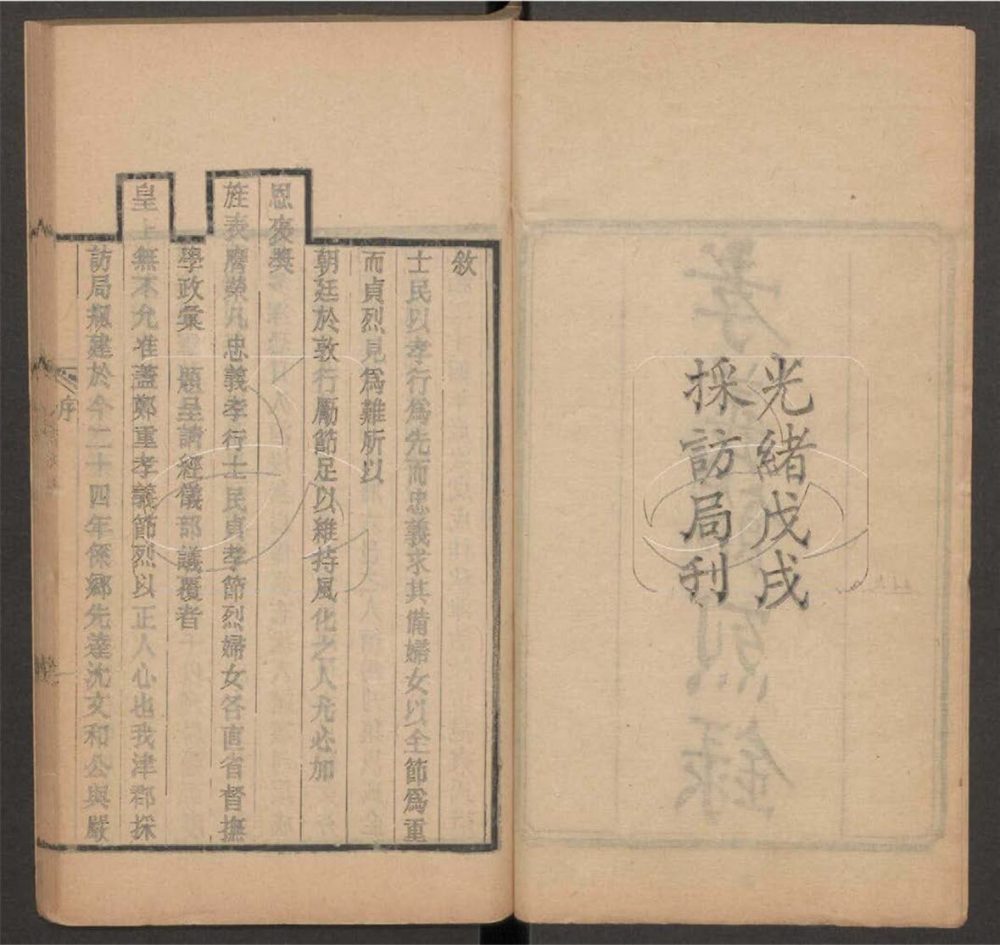 光緒戊戌
採訪局刋
敘
士民以孝行爲先而忠義求其備婦女以全節爲重
而貞烈見爲難所以
朝廷於敦行勵節足以維持風化之人尤必加
恩褒奬
旌表磨榮凡忠義孝行士民貞孝節烈婦女各直省督撫
學政彙題呈請經儀部議覆者
皇上無不允准蓋鄭重孝義節烈以正人心也我津郡採
訪局創建於今二十四年係鄉先達沈文和公與嚴
序